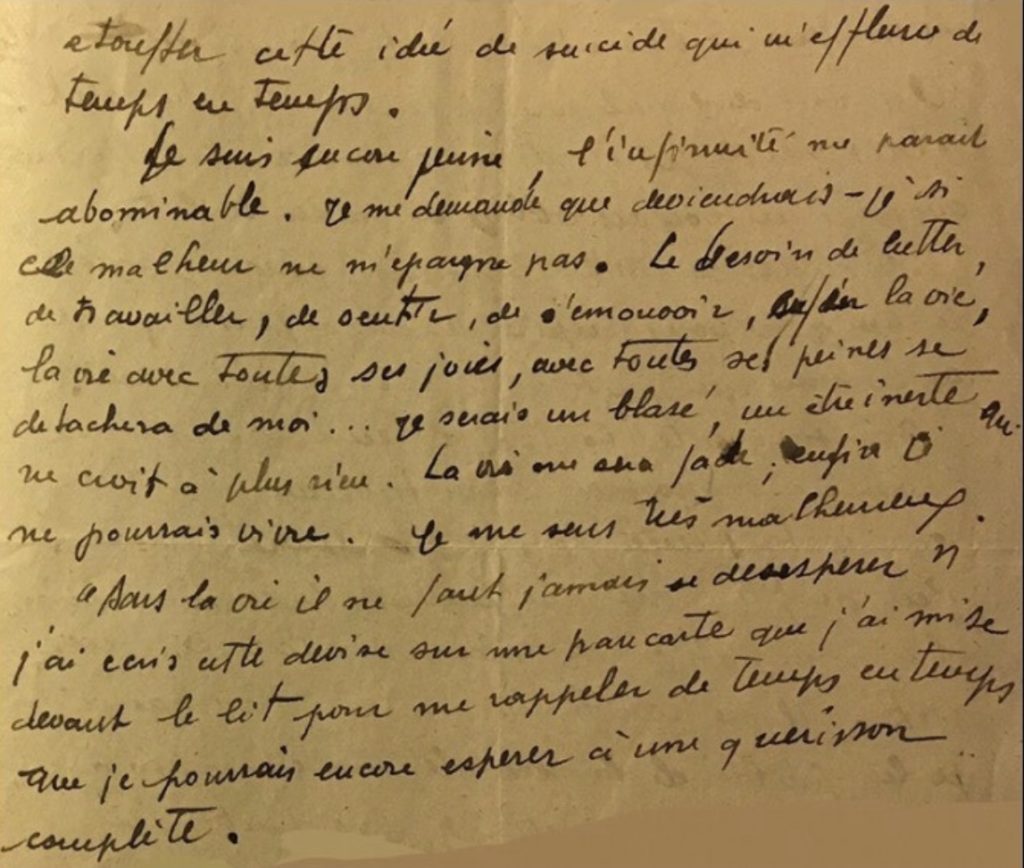 etouffer cette idée de suicide qui m'effleure de
temps en temps.
Je suis encore jeune, l'infirmité me parait
abominable. Je me demande que deviendrais-je si
ce malheur ne m'epargne pas. Le besoin de lutter,
de travailler, de sentir, de s'emouvoir, enfin la vie,
la vie avec toutes ses joies, avec toutes ses peines se
detachera de moi... Je serais un blasé, un être inerte qui
ne croit à plus rien. La vie me sera fade, enfin
ne pourrais vivre. Je me sens très malheureux.
"Dans la vie il ne faut jamais se desesperer"
j'ai ecris cette devise sur une pancarte que j'ai mise
devant le lit pour me rappeler de temps en temps
que je pourrais encore esperer à une guerisson
complète.